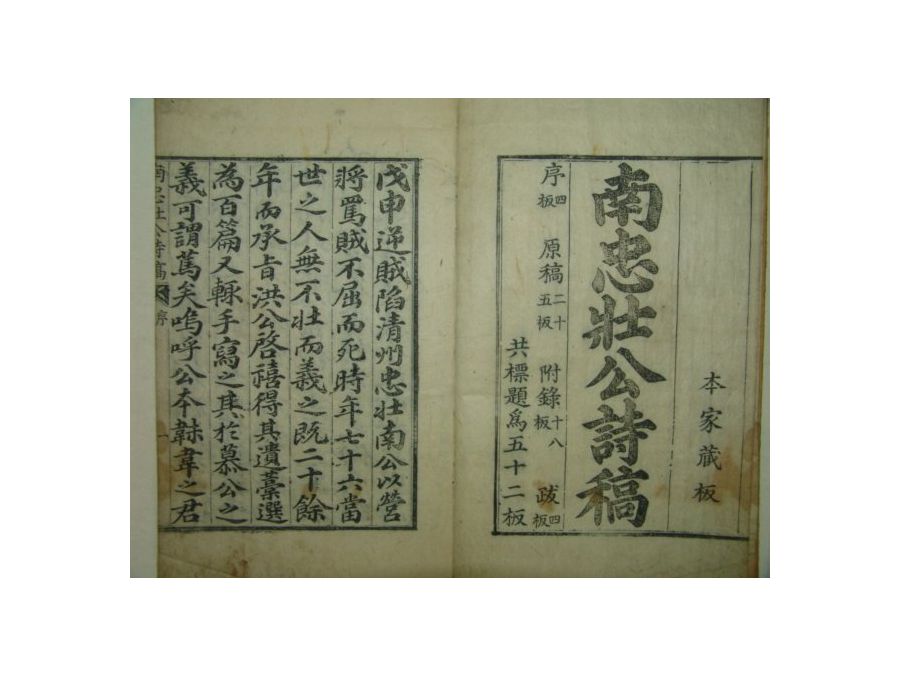 本家蔵板
南忠壯公詩稿
序四板 原稿二十五板 附錄十八板 跋四板
共標題爲五十二板
戊申逆賊陷清州忠壯南公以營
將罵賊不屈而死時年七十六當
世之人無不壯而義之既二十餘
年而承旨洪公啓禧得其遺藁選
為百篇又輟手寫之其於慕公之
義可謂篤矣嗚呼公本韎韋之君
南忠壯公詩稿 序 一